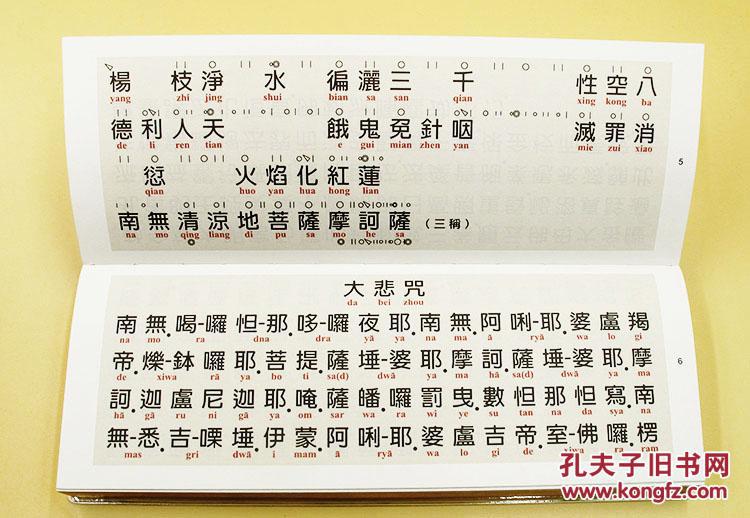 楊 枝淨 水 徧灑三 千 性空八
yang zhi jing shui bian sa san qian xing kong ba
德利人天 餓鬼免針咽 滅罪消
de li ren tian e gui mian zhen yan mie zui xiao
5
愆 火焰化紅蓮
qian huo yan hua hong lian
南無清涼地菩薩摩訶薩(三稱)
na mo qing liang di pu sa mo he sa
大悲咒
da bei zhou
南無.喝-囉 怛-那.哆-囉 夜耶.南無.阿唎-耶.婆盧羯
na mo ra dna dra yā na mo ā ryā wa lo gi
6
帝.爍-鉢囉耶.菩提.薩埵-婆耶.摩訶.薩埵-婆耶.摩
de xiwa rā ya bo ti sa(d) dwā ya ma hā sa(d) dwā ya ma
訶.迦盧尼迦耶.唵.薩皤-囉罰曳.數怛那怛寫.南
hā gā ru ni gā ya om sar wa ra wi ye su tan na da sya na
無-悉.吉-㗚埵.伊蒙.阿唎-耶.婆盧吉帝.室-佛囉.楞
mas gri dwā i mam ā ryā wa lo gi de xiwa ra. ra
孔夫子旧书网
www.kongfz.com